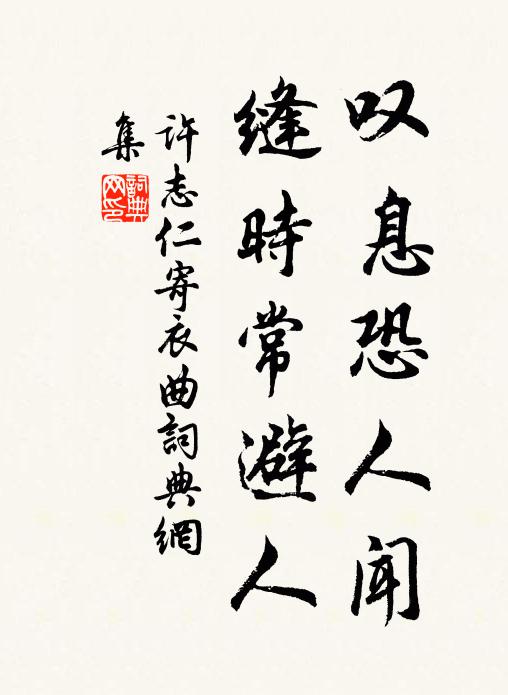 叹息恐人闻
缝時常避人
许志仁寄衣曲詞典網
集
詞典
网印